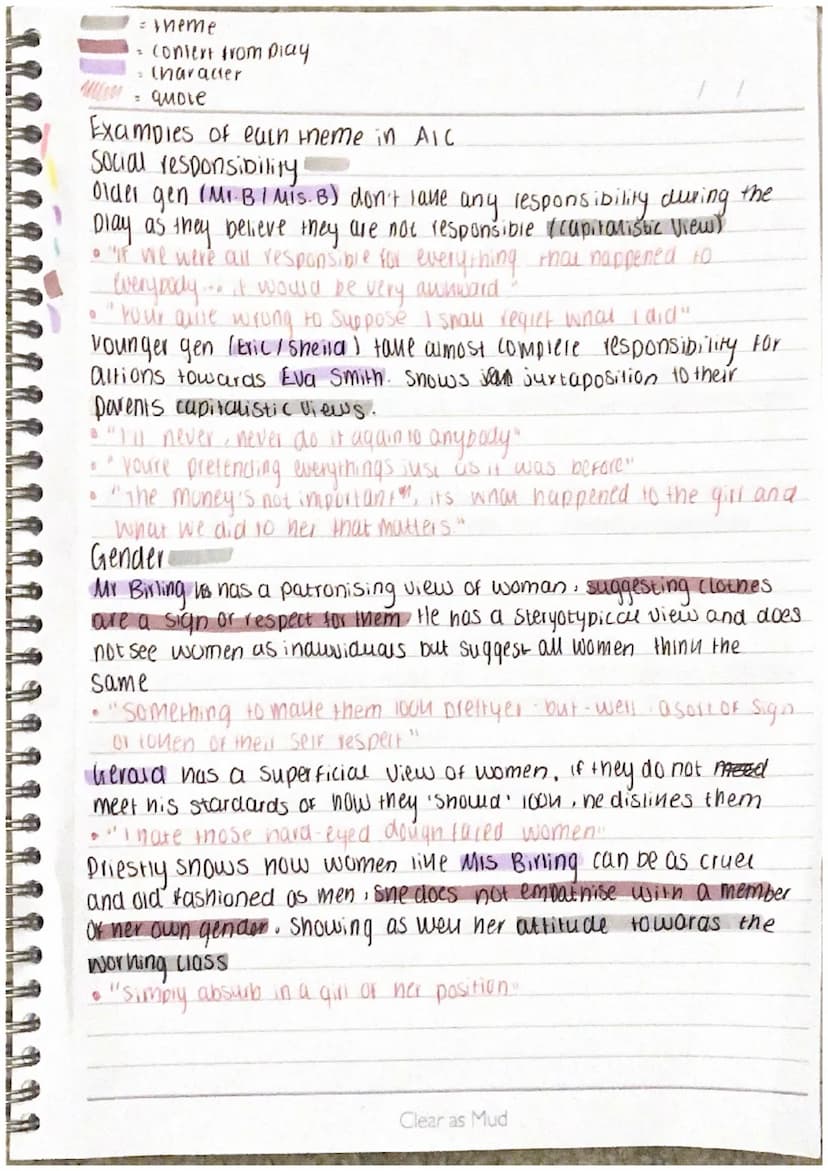 = theme
= context from play
= character
= quote
/ /
Examples of each theme in AIC
Social responsibility
Older gen (Mr.B / Mrs.B) don't take any responsibility during the
play as they believe they are not responsible (capitalistic view)
• "if we were all responsible for everything that happened to
everybody... it would be very awkward"
• "Your quite wrong to suppose I shall regret what I did"
Younger gen (Eric / Sheila) take almost complete responsibility for
actions towards Eva Smith. Shows juxtaposition to their
parents capitalistic views.
• "I'll never, never do it again to anybody"
• "You're pretending everythings just as it was before"
• "The money's not important", its what happened to the girl and
what we did to her that matters."
Gender
Mr Birling has a patronising view of woman, suggesting clothes
are a sign of respect for them. He has a steryotypical view and does
not see women as indiuviduals but suggest all women think the
same
• "Something to make them look prettyer - but - well - a sort of sign
or token of their self respect"
Gerald has a superficial view of women, if they do not need
meet his stardards of how they 'should' look, he dislikes them
• "I hate those hard-eyed dough faced women"
Priestly shows how women like Mrs Birling can be as cruel
and old fashioned as men, she does not empathise with a member
of her own gender. Showing as well her attitude towards the
working class
• "Simply absurb in a girl of her position"
Clear as Mud